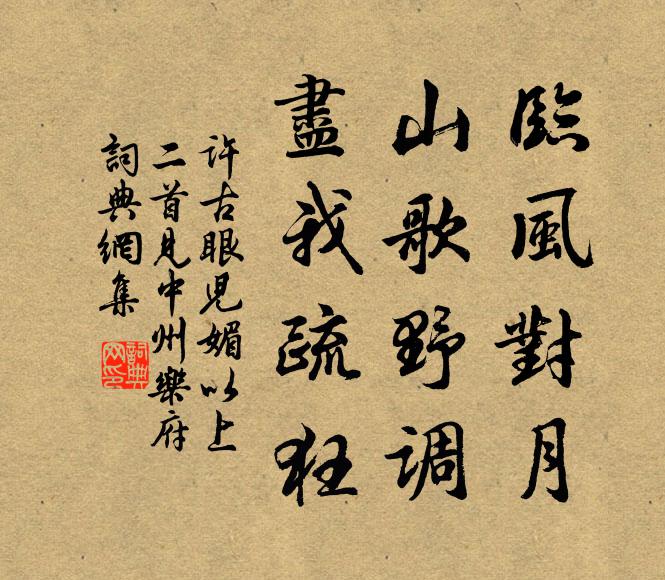 臨風對月
山歌野调
盡我疏狂
许古眼児媚以上
二首見中州樂府
詞典網集
詞典網印